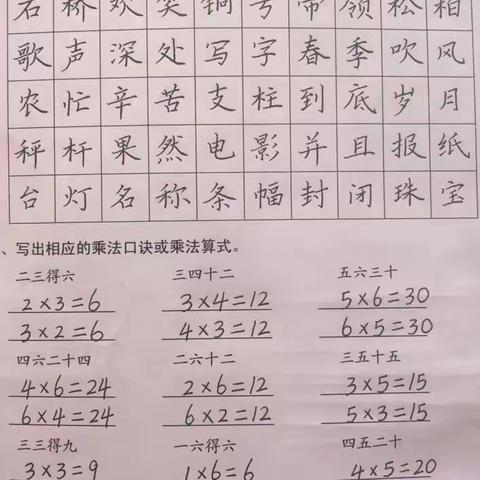 石 桥 欢 笑 铜 号 带 领 松 柏
歌 声 深 处 写 字 春 季 吹 风
农 忙 辛 苦 支 柱 到 底 岁 月
秤 杆 果 然 电 影 并 且 报 纸
台 灯 名 称 条 幅 封 闭 珠 宝
、写出相应的乘法口诀或乘法算式。
二三得六 三四十二 五六三十
2×3=6 3×4=12 5×6=30
3×2=6 4×3=12 6×5=30
四六二十四 二六十二 三五十五
4×6=24 2×6=12 3×5=15
6×4=24 6×2=12 5×3=15
三三得九 一六得六 四五二十
3×3=9 1×6=6 4×5=20